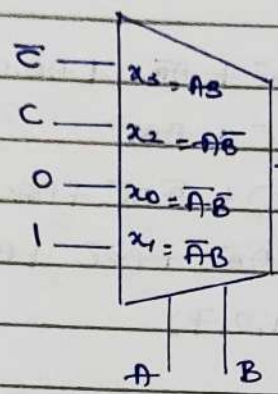 C̅ x₃ = AB
C x₂ = AB̅
0 x₀ = A̅ B̅
1 x₁ = A̅B
A B